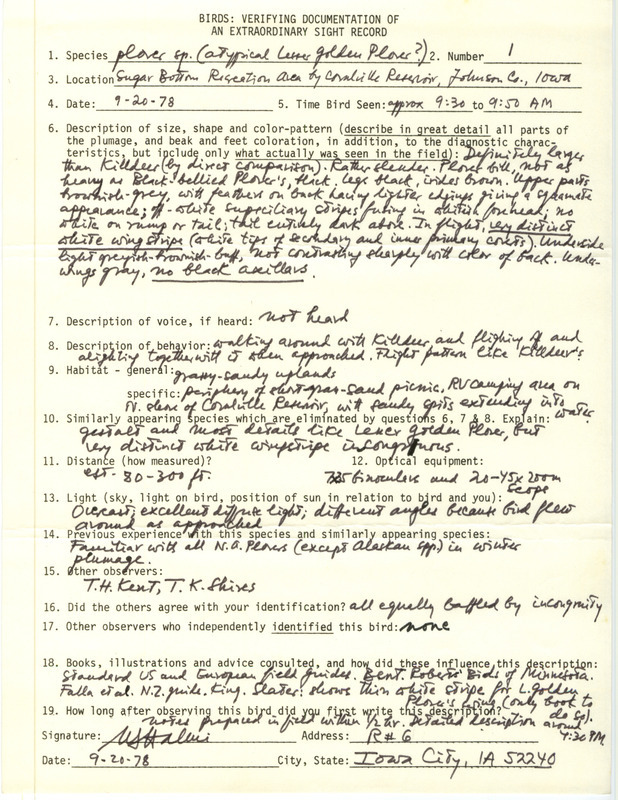 BIRDS: VERIFYING DOCUMENTATION OF
AN EXTRAORDINARY SIGHT RECORD
1. Species plover sp. (atypical Lesser Golden Plover?) 2. Number 1
3. Location Sugar Bottom Recreation Area by Coralville Reservoir, Johnson Co., Iowa
4. Date: 9-20-78 5. Time Bird Seen: approx 9:30 to 9:50 AM
6. Description of size, shape and color-pattern (describe in great detail all parts of
the plumage, and beak and feet coloration, in addition, to the diagnostic charac-
teristics, but include only what actually was seen in the field): Definitely larger
than Killdeer (by direct comparison). Rather slender. Plover bill, not as
heavy as Black-bellied Plover's, black. legs black, irides brown. Upper parts
brownish-grey, with feathers on back having lighter edgings giving a squamate
appearance; white superciliary stripes fusing in whitish forehead; no
white on rump or tail; tail entirely dark above. In flight, very distinct
white wing stripe (white tips of secondary and inner primary coverts). Underside
light greyish-brownish-buff, not contrasting sharply with color of back. Under-
wings gray, no black axillars.
7. Description of voice, if heard: not heard
8. Description of behavior: walking around with Killdeer, and flighing off and
alighting together with it when approached. Flight pattern like Killdeer's
9. Habitat - general: grassy-sandy uplands
specific: periphery of short-grass-sand picnic, RV camping area on
W. shore of Coralville Reservoir, with sandy spits extending into
water.
10. Similarly appearing species which are eliminated by questions 6, 7 & 8. Explain:
gestalt and most details like Lesser Golden Plover, but
very distinct white wingstripe incongruous.
11. Distance (how measured)? 12. Optical equipment:
est. 80-300 ft. 7x35 binoculars and 20-45x zoom
scope
13. Light (sky, light on bird, position of sun in relation to bird and you):
Overcast; excellent diffuse light; different angles because bird flew
around as approached
14. Previous experience with this species and similarly appearing species:
Familiar with all N.A. Plovers (except Alaskan spp.) in winter
plumage.
15. Other observers:
T.H. Kent, T.K. Shires
16. Did the others agree with your identification? all equally baffled by incongruity
17. Other observers who independently identified this bird: none
18. Books, illustrations and advice consulted, and how did these influence this description:
Standard US and European field guides. Bent. Roberts' Birds of Minnesota.
Falla et al. N.Z. guide. King. Slater: shows thin white stripe for L. golden
Plover's wing (only book to
do so).
19. How long after observing this bird did you first write this description?
notes prepared in field within 1/2 hr. Detailed description around
4:30 PM.
Signature: Address: R # 6
Date: 9-20-78 City, State: Iowa City, IA 52240